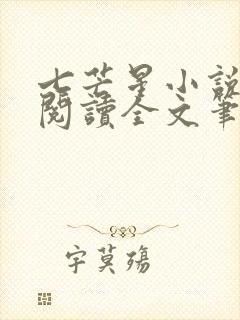 七芒星小說
閱讀全文筆
字莫殤